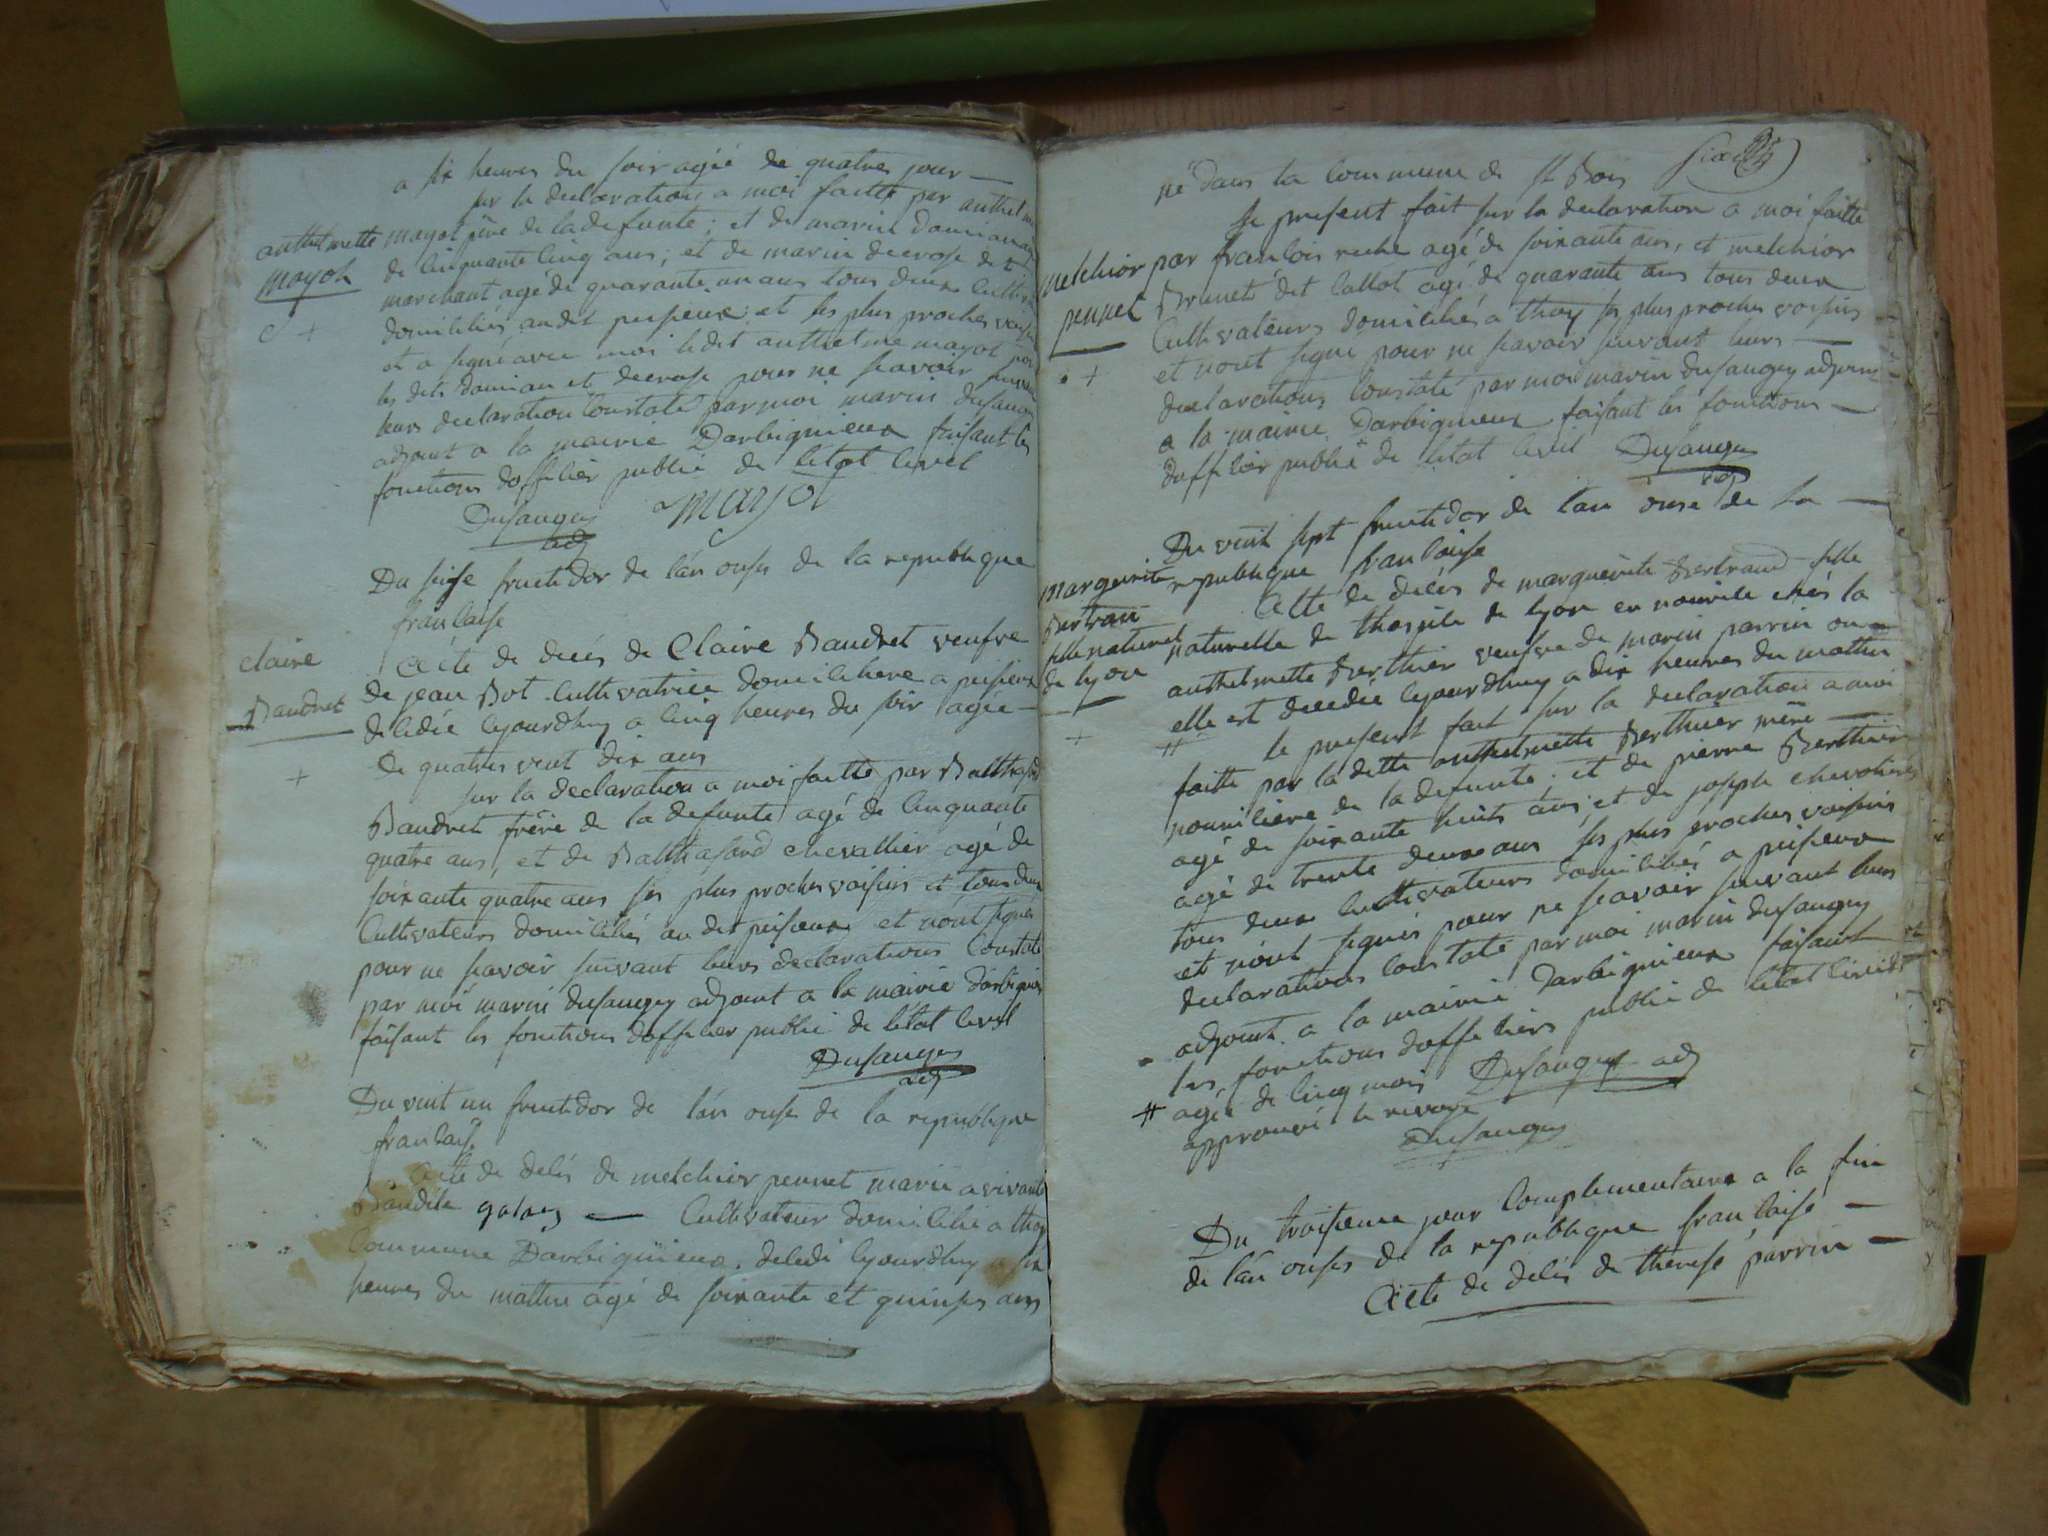 a six heures du soir agée de quatre jour —
sur la declaration a moi faitte par anthelme
anthelmette
mayot
mayot père de la defunte; et de marin damian agé
de cinquante cinq ans; et de marin decrose dit
marchant agé de quarante un ans tous deux cultiva
domiciliés au dit peisieux et ses plus proches voisins
et a signé avec moi ledit anthelme mayot non
les dits damian et decrose pour ne scavoir suivant
leurs declaration Constaté par moi marin dusaugey
adjoint a la mairie Darbignieux faisant les
fonctions dofficier public de letat civil
Dusaugey mayot
adj
Du seise fructidor de lan onse de la republique
francaise
claire
Baudret
Acte de decés de Claire Baudret veufve
de jean Bot Cultivatrice domiciliere a peisieux
decedée cejourdhuy a cinq heures du soir agée —
de quatres vent dix ans
sur la declaration a moi faitte par Balthasard
Baudret frère de la defunte agé de cinquante
quatre ans, et de Balthasard chevallier agé de
soixante quatre ans ses plus proches voisins et tous deux
Cultivateurs domiciliés au dit peisieux et nont signés
pour ne scavoir suivant leurs declarations Constaté
par moi marin dusaugey adjoint a la mairie darbignieux
faisant les fonctions dofficier public de létat civil
Dusaugey
adj
Du vint un fructidor de lan onse de la republique
francaise
Acte de decés de melchior pennet marié a vivante
Baudite — Cultivateur domicilié a thoy
Commune Darbignieux. decedé cejourdhuy a six
heures du mattin agé de soixante et quinses ans
né dans la commune de st Bois
melchior
pennet
le present fait sur la declaration a moi faitte
par francois ruche agé de soixante ans, et melchior
Brunet dit Callot agé de quarante ans tous deux
Cultivateurs domiciliés a thoy ses plus proches voisins
et nont signé pour ne scavoir suivant leurs —
declarations Constaté par moi marin dusaugey adjoint
a la mairie Darbignieux faisant les fonctions —
dofficier public de letat civil Dusaugey
adj
Du vint sept fructidor de lan onse de la —
republique francaise
marguerite
Bertran
fille naturel
de lyon
Acte de decés de marguerite Bertrand fille
naturelle de lhospile de lyon en nourice chés la
anthelmette Berthier veufve de marin parrin ou
elle est decedée cejourdhuy a dix heures du mattin
# le present fait sur la declaration a moi
faitte par la ditte anthelmette Berthier mère —
nouricière de la defunte; et de pierre Berthier
agé de soixante huits ans; et de joseph chevalier
agé de trente deux ans ses plus proches voisins
tous deux Cultivateurs domiciliés a peisieux
et nont signés pour ne scavoir suivant leurs
declarations Constaté par moi marin dusaugey
adjoint a la mairie darbignieux faisant
les fonctions dofficiers public de letat civil
# agée de cinq mois Dusaugey adj
approuvé le renvoye
Dusaugey
Du troisieme jour Complementaire a la fin
de lan onses de la republique francaise —
Acte de decés de therese parrin —